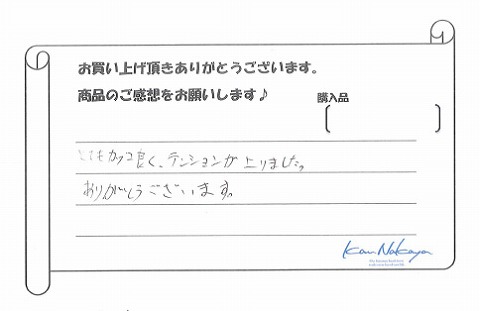 お買い上げ頂きありがとうございます。
商品のご感想をお願いします♪
購入品
とてもカッコ良く、テンションが上りました。
ありがとうございます。
Kan Nakaya